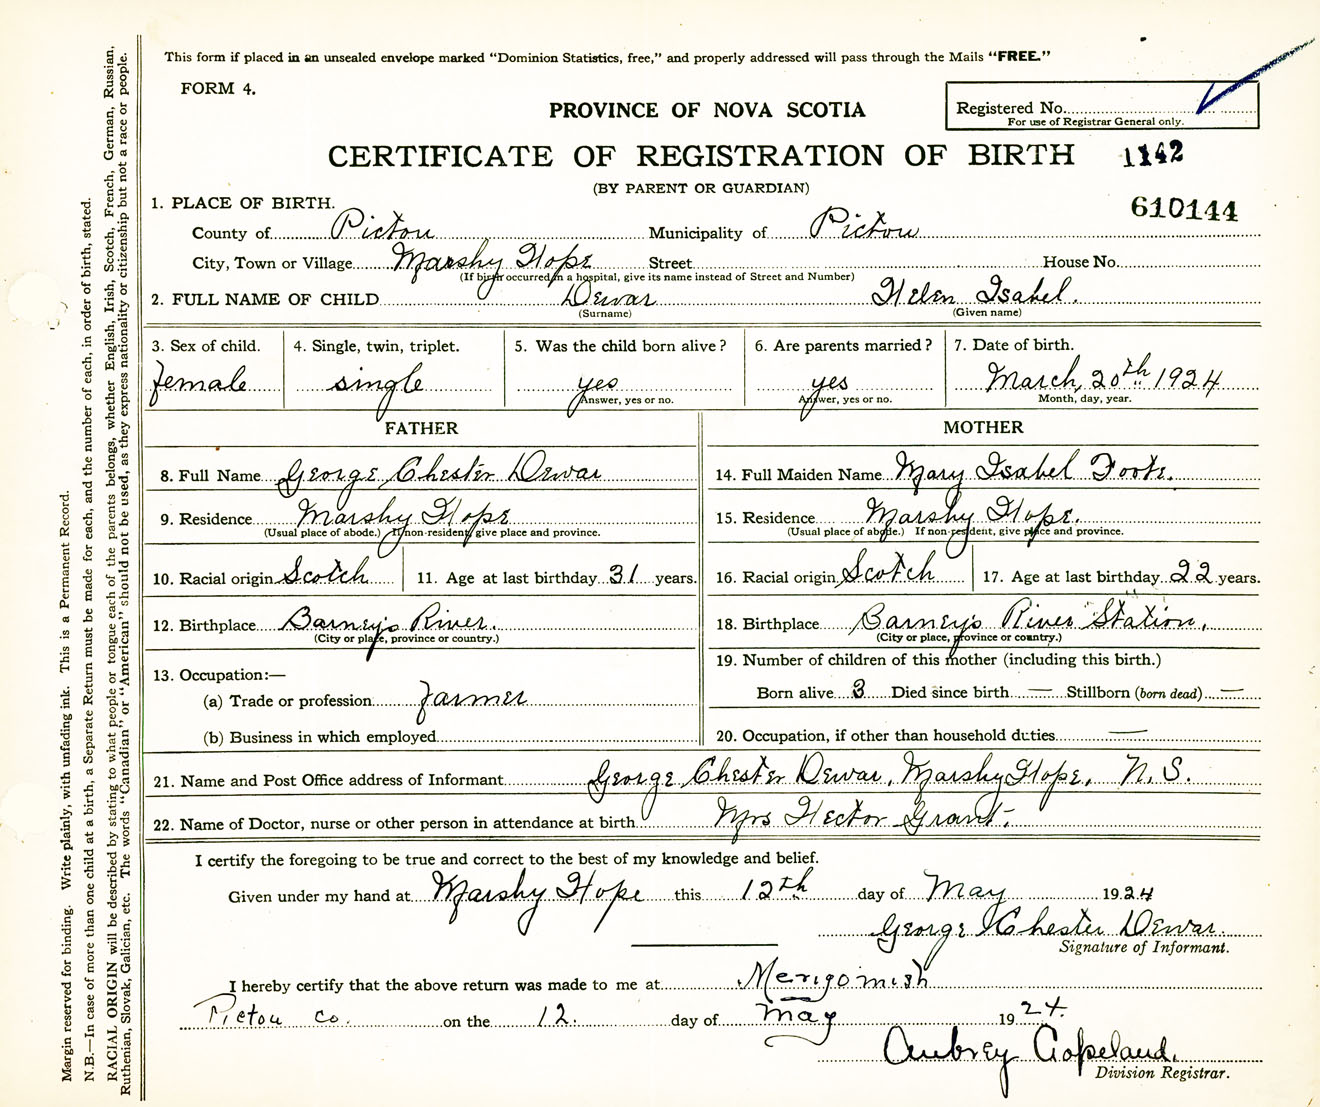 This form if placed in an unsealed envelope marked "Dominion Statistics, free," and properly addressed will pass through the Mails "FREE."
FORM 4.
PROVINCE OF NOVA SCOTIA
Registered No.
For use of Registrar General only.
CERTIFICATE OF REGISTRATION OF BIRTH 1142
(BY PARENT OR GUARDIAN)
610144
1. PLACE OF BIRTH.
County of Pictou Municipality of Pictou
City, Town or Village Marshy Hope Street House No.
(If birth occurred in a hospital, give its name instead of Street and Number)
2. FULL NAME OF CHILD Dewar Helen Isabel.
(Surname) (Given name)
3. Sex of child. 4. Single, twin, triplet. 5. Was the child born alive? 6. Are parents married? 7. Date of birth.
female single yes yes March, 20th 1924
Answer, yes or no. Answer, yes or no. Month, day, year.
FATHER MOTHER
8. Full Name George Chester Dewar 14. Full Maiden Name Mary Isabel Foote.
9. Residence Marshy Hope 15. Residence Marshy Hope.
(Usual place of abode.) If non-resident, give place and province. (Usual place of abode.) If non-resident, give place and province.
10. Racial origin Scotch 11. Age at last birthday 31 years. 16. Racial origin Scotch 17. Age at last birthday 22 years.
12. Birthplace Barney's River. 18. Birthplace Barney's River Station.
(City or place, province or country.) (City or place, province or country.)
13. Occupation:— 19. Number of children of this mother (including this birth.)
(a) Trade or profession farmer Born alive 3 Died since birth — Stillborn (born dead) —
(b) Business in which employed 20. Occupation, if other than household duties —
21. Name and Post Office address of Informant George Chester Dewar, Marshy Hope, N.S.
22. Name of Doctor, nurse or other person in attendance at birth Mrs Hector Grant.
I certify the foregoing to be true and correct to the best of my knowledge and belief.
Given under my hand at Marshy Hope this 12th day of May 1924
George Chester Dewar.
Signature of Informant.
I hereby certify that the above return was made to me at Merigomish
Pictou Co. on the 12. day of May 1924.
Aubrey Copeland.
Division Registrar.
Margin reserved for binding. Write plainly, with unfading ink. This is a Permanent Record.
N.B.—In case of more than one child at a birth, a Separate Return must be made for each, and the number of each, in order of birth, stated.
RACIAL ORIGIN will be described by stating to what people or tongue each of the parents belongs, whether English, Irish, Scotch, French, German, Russian,
Ruthenian, Slovak, Galician, etc. The words "Canadian" or "American" should not be used, as they express nationality or citizenship but not a race or people.